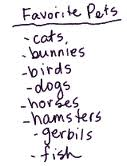 Favorite Pets
-cats,
-bunnies
-birds
-dogs
-horses
-hamsters
-gerbils
-fish